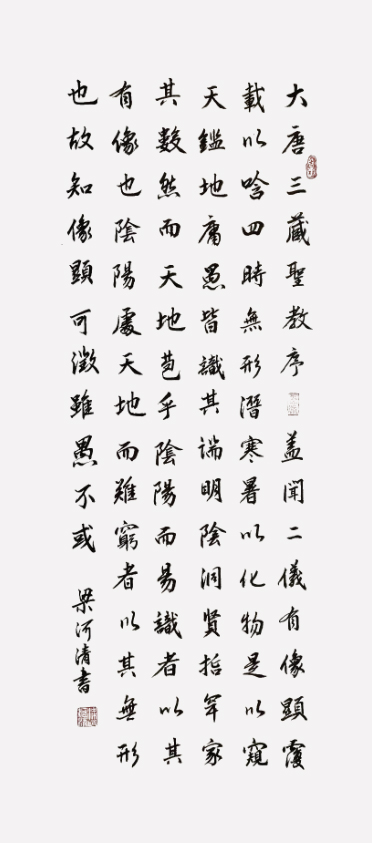 大唐三蔵聖教序 盖聞二儀有像顯覆
載以唅四時無形潛寒暑以化物是以窺
天鑑地庸愚皆識其端明陰洞賢哲罕家
其數然而天地苞乎陰陽而易識者以其
有像也陰陽處天地而難窮者以其無形
也故知像顯可徵雖愚不或
梁河清書